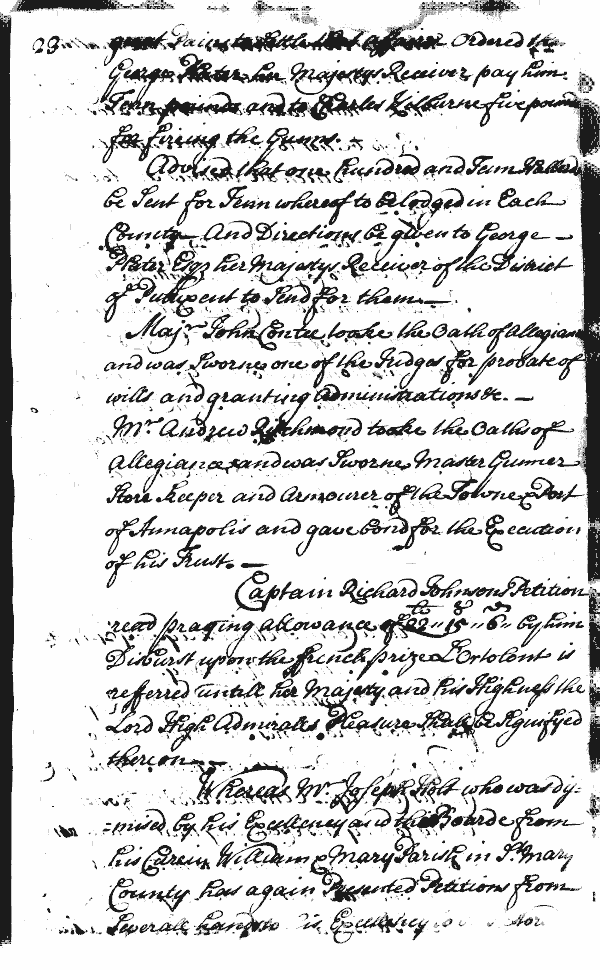 23 great Pains to settle that affaire Ordered th
George Plater her Majestys Receiver pay him
Tenn pounds and to Charles Kilburne five pounds
for fireing the Gunns. —
Advised that one hundred and Tenn
be Sent for Tenn whereof to be lodged in Each
County — And Directions be given to George —
Plater Esqr her Majestys Receiver of the District
of Putuxent to Send for them. —
Majr John Contee tooke the Oath of Allegiance
and was Sworne one of the Judges for probate of
wills and granting Administrations &c. —
Mr Andrew Richmond tooke the Oaths of
Allegiance and was Sworne Master Gunner
Store Keeper and Armourer of the Towne & Port
of Annapolis and gave bond for the Execution
of his Trust. —
Captain Richard Johnsons Petition
read praying allowance of 22 " 15 " 6 " by him
Disburst upon the french prize L'Ortolont is
referred untill her Majesty and his Highness the
Lord High Admiralls Pleasure shall be Signifyed
thereon —
Whereas Mr Joseph Holt who was dy=
=mised by his Excellency and the Boarde from
his Cure in William & Mary Parish in St Mary
County has again Presented Petitions from
Severall hands to his Excellency